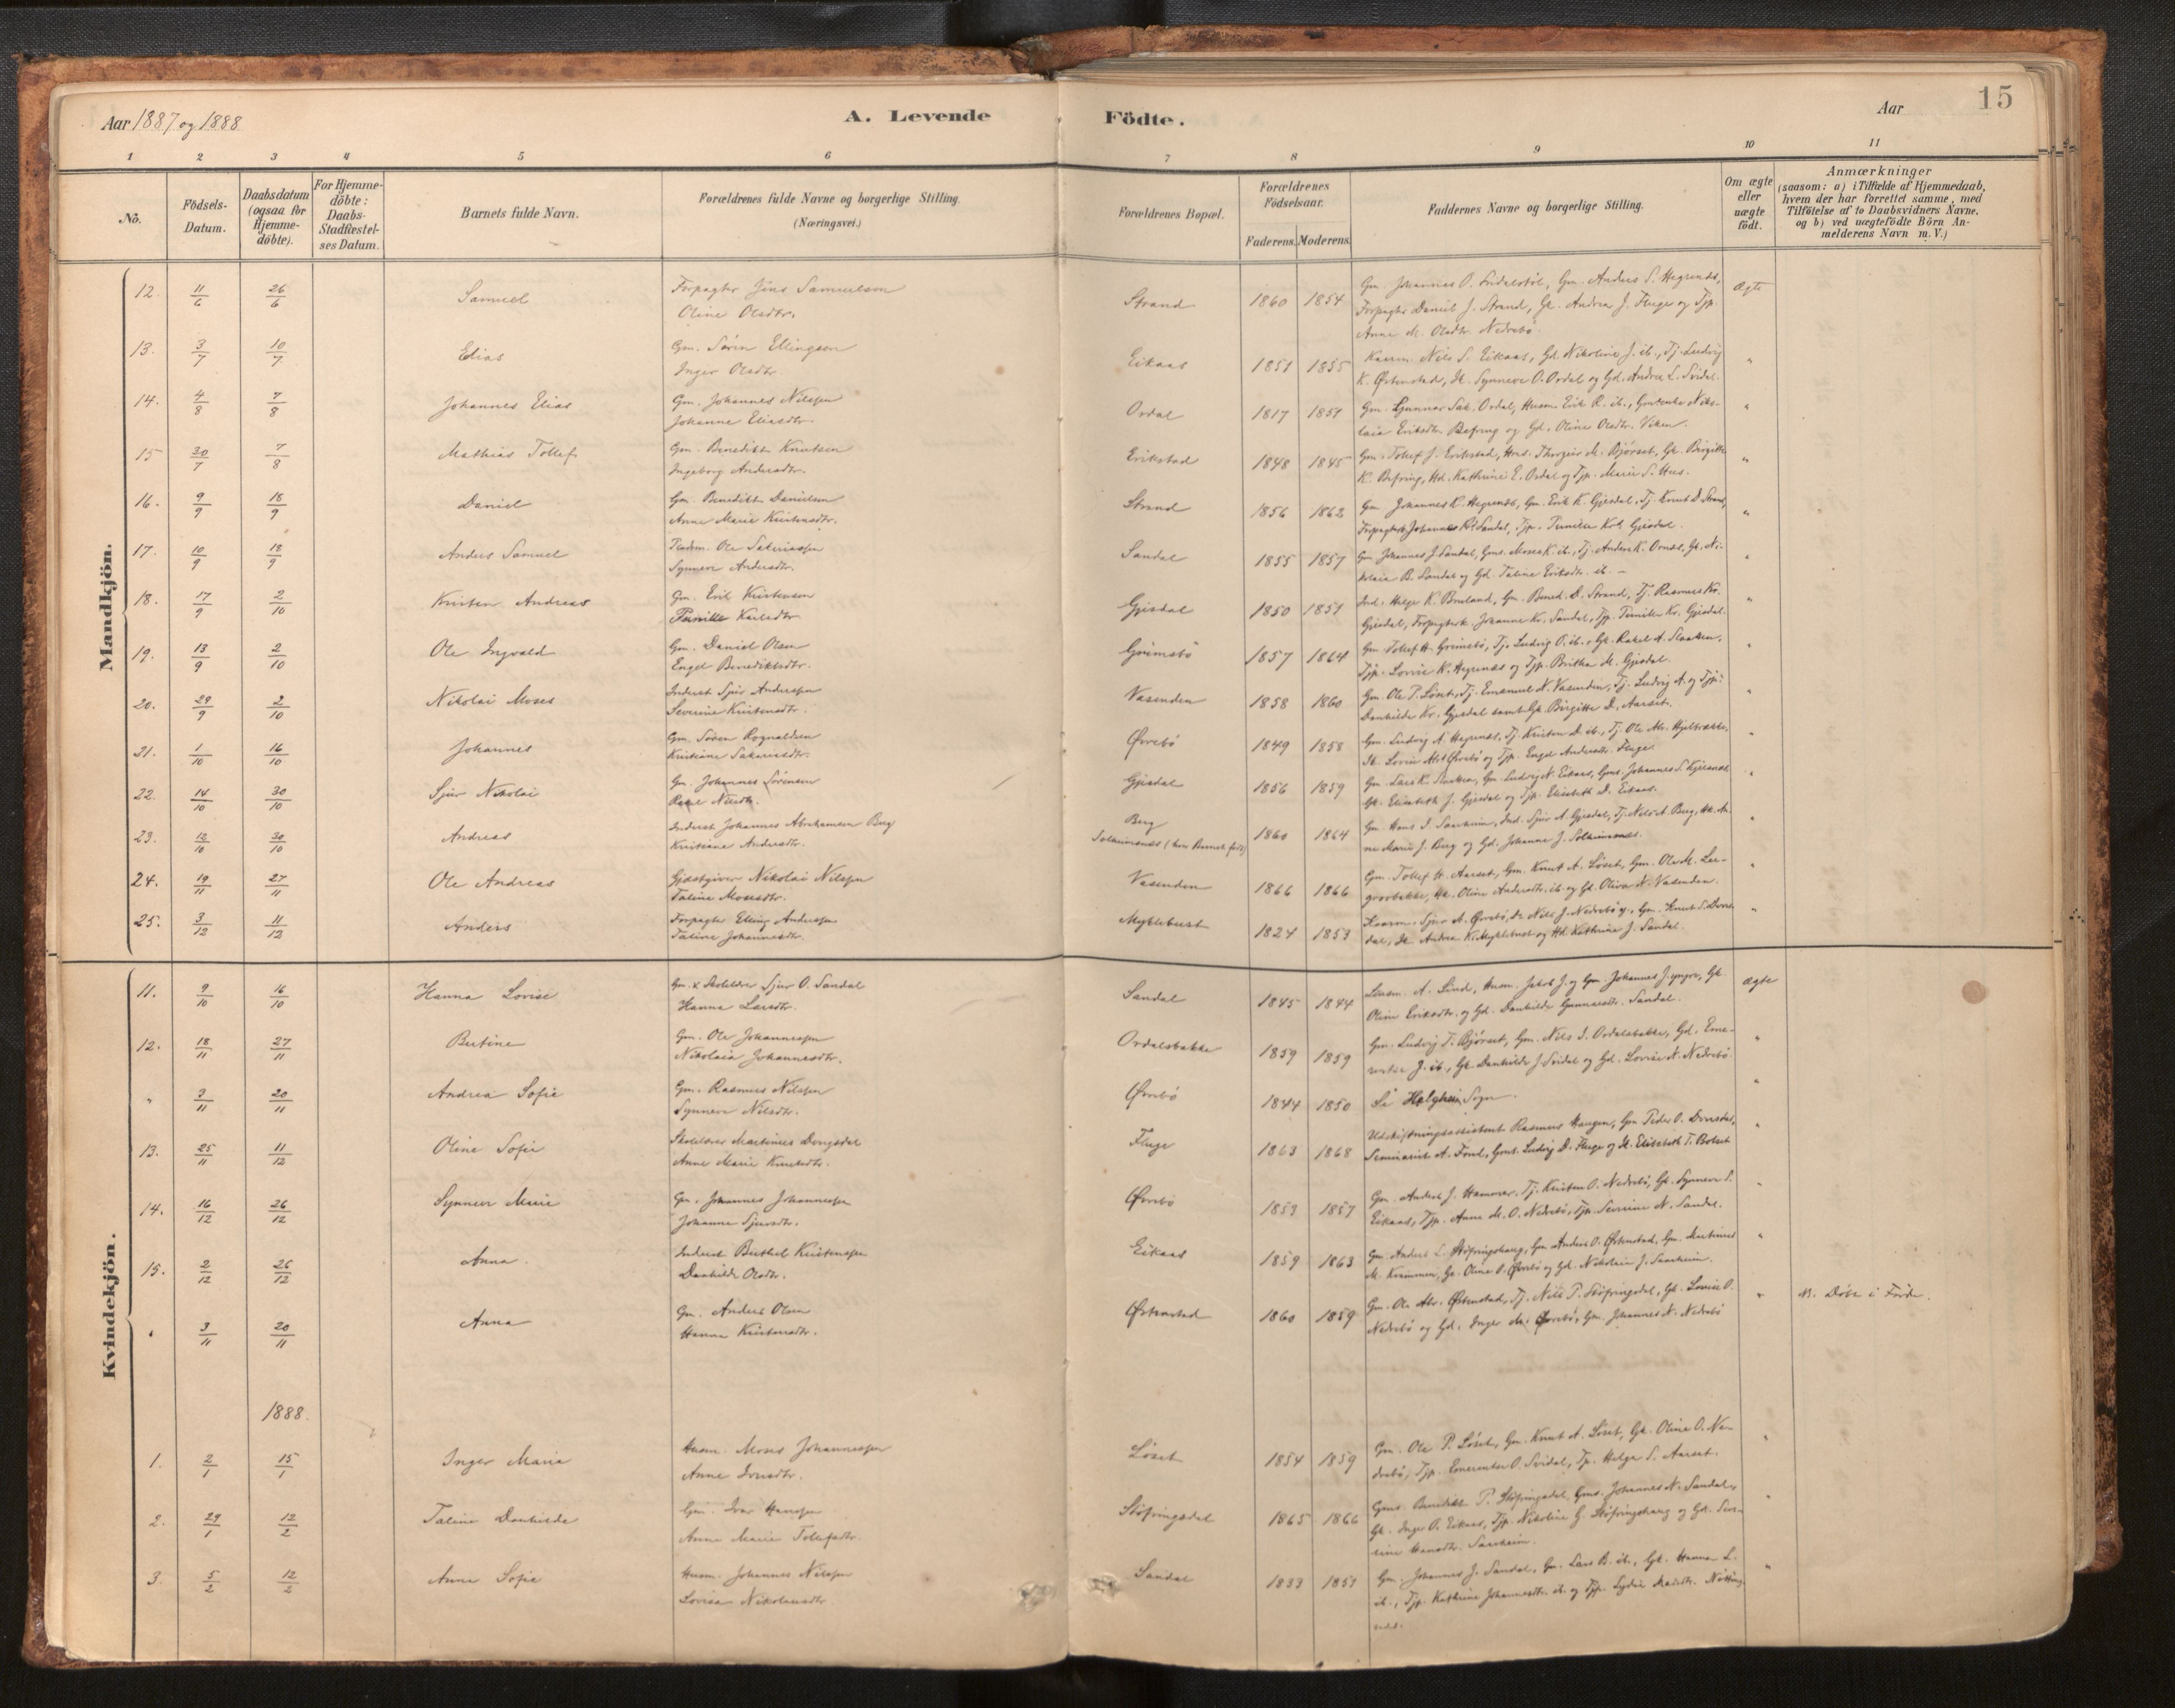 Aar 1887 og 1888
A. Levende
Födte.
Aar
15
1 2 3 4 5 6 7 8 9 10 11
No.
Födsels-Datum.
Daabsdatum (ogsaa for Hjemme-döbte).
For Hjemme-döbte: Daabs-Stadfæstel-ses Datum.
Barnets fulde Navn.
Forældrenes fulde Navne og borgerlige Stilling. (Næringsvei.)
Forældrenes Bopæl.
Forældrenes Födselsaar.
Faderens. Moderens.
Faddernes Navne og borgerlige Stilling.
Om ægte eller uægte födt.
Anmærkninger
(saasom: a) i Tilfælde af Hjemmedaab,
hvem der har forrettet samme, med
Tilföielse af to Daabsvidners Navne,
og b) ved uægtefödte Börn An-
melderens Navn m. V.)
Mandkjön.
12. 11/6 26/6 Samuel Forpagter Jens Samuelson Strand 1860 1854 Gm. Johannes O. Svidalstøl, Gm. Anders S. Hegrenæs, ægte
Oline Olsdtr. Forpagter Daniel J. Strand, Gk. Andrea J. Fluge og Tjp.
Anne M. Olsdtr. Nedrebø.
13. 3/7 10/7 Elias Gm. Søren Ellingsen Eikaas 1851 1855 Kaarm. Nils S. Eikaas, Gd. Nikoline J. ib., Tj. Ludvig "
Inger Olsdtr. K. Østenstad, Synneve O. Ordal og Gd. Andrea L. Svidal.
14. 4/8 7/8 Johannes Elias Gm. Johannes Nilssen Ordal 1817 1851 Gm. Gunnar Sak. Ordal, Husm. Erik R. ib., "
Johanne Eliasdtr. Eriksdtr. Befring og Gd. Oline Olsdtr. Viken.
15 30/7 7/8 Mathias Tollef Gm. Benedikt Knutsen Erikstad 1848 1845 Gm. Tollef J. Erikstad, M. Bjørset, Gk. Birgitte "
Ingeborg Andersdtr. K. Befring, Kathrine E. Ordal og Tjp. Marie S. Hus.
16. 9/9 18/9 Daniel Gm. Benedikt Danielsen Strand 1856 1862 Gm. Johannes K. Hegrenæs, Gm. Erik K. Gjesdal, Tj. Knut D. Strand, "
Anne Marie Kristensdtr. Sandal, Tjp. Pernille Kr. Gjesdal.
17. 10/9 18/9 Anders Samuel Pladsm. Ole Sakariassen Sandal 1855 1857 Gm. Johannes J. Sandal, Gms. Moses K. ib., Tj. Anders K. Ornæs, Gk. Ni- "
Synneve Andersdtr. kolaia B. Sandal og Gd. Taline Eriksdtr. ib. –
18. 17/9 2/10 Kristen Andreas Gm. Erik Kristensen Gjesdal 1850 1851 Ind. Helge K. Bruland, Gm. Bened. D. Strand, Tj. Rasmus Kr. "
Pernille Karlsdtr Gjesdal, Forpagterk. Johanne Kr. Sandal, Tjp. Pernille Kr. Gjesdal.
19. 13/9 2/10 Ole Ingvald Gm. Daniel Olsen Grimsbø 1857 1864 Gm. Tollef H. Grimsbø, Tj. Ludvig O. ib., Gk. Rakel A. Slaatten, "
Engel Benediktsdtr. Tjp. Lovise K. Hegrenæs og Tjp. Britha M. Gjesdal.
20. 29/9 2/10 Nikolai Moses Inderst Sjur Anderssen Vasenden 1858 1860 Gm. Ole P. Løset, Tj. Emanuel N. Vasenden, Tj. Ludvig A. og Tjp: "
Severine Kristensdtr. Danhilde Kr. Gjesdal samt Gk. Birgitte D. Aarset.
21. 1/10 16/10 Johannes Gm. Søren Rognaldsen Øvrebø 1849 1858 Gm. Ludvig A. Hegrenæs, Tj. Kristen D. ib., Tj. Ole Abr. Hjelbrække, "
Kristiane Sakariasdtr. Øvrebø og Tjp. Engel Andersdtr. Fluge.
22. 14/10 30/10 Sjur Nikolai Gm. Johannes Sørensen Gjesdal 1856 1859 Gm. Lars K. Slaatten, Gm. Ludvig N. Eikaas, Gms. Johannes S. "
Gk. Elisabeth J. Gjesdal og Tjp. Elisabeth D. Eikaas.
23. 12/10 30/10 Andreas Inderst Johannes Abrahamsen Berg Berg 1860 1864 Gm. Hans I. Saxheim, Ind. Sjur A. Gjesdal, Tj. Nils A. Berg, An- "
Kristiane Andersdtr. Solheimsnæs (hvor Barnet født) ne Marie J. Berg og Gd. Johanne J. Solheimsnæs.
24. 19/11 27/11 Ole Andreas Gjæstgiver Nikolai Nilssen Vasenden 1866 1866 Gm. Tollef H. Aarset, Gm. Knut A. Løset, Gm. Ole M. "
Taline Mosesdtr. Oline Andersdtr. ib. og Gd. Oliva N. Vasenden.
25. 3/12 11/12 Anders Forpagter Elling Anderssen Myklebust 1824 1853 Kaarm. Sjur A. Øvrebø, Nils J. Nedrebø, Gm. Knut S. "
Taline Johannesdtr. Andrea K. Myklebust og Kathrine J. Sandal.
Kvindekjön.
11. 9/10 16/10 Hanna Lovise Gm. & Skolelærer Sjur O. Sandal Sandal 1845 1844 Lensm. A. Lind, Husm. Jakob J. og Gm. Johannes J. yngre, Gk. ægte
Hanna Larsdtr. Oline Eriksdtr. og Gd. Danhilde Gunnarsdtr. Sandal.
12. 18/11 27/11 Bertine Gm. Ole Johannessen Ordalsbakke 1859 1859 Gm. Ludvig T. Bjørset, Gm. Nils I. Ordalsbakke, Gd. Eme- "
Nikolaia Johannesdtr. rentse J. ib., Gk. Danhilde J. Svidal og Gd. Lovise N. Nedrebø.
" 3/11 20/11 Andrea Sofie Gm. Rasmus Nilssen Øvrebø 1844 1850 Se Helgheim Sogn. "
Synneve Nilsdtr.
13. 25/11 11/12 Oline Sofie Skolelærer Martinus Dvergsdal Fluge 1863 1868 Udskiftningsassistent Rasmus Haugen, Gm. Peder O. "
Anne Marie Knutsdtr. Seminarist A. Fond, Gms. Ludvig D. Fluge og Elisabeth T. Bolset
14. 16/12 26/12 Synneve Marie Gm. Johannes Johannessen Øvrebø 1853 1857 Gm. Anders J. Hamrer, Tj. Kristen O. Nedrebø, Gk. Synneve S. "
Johanne Sjursdtr. Eikaas, Tjp. Anne M. O. Nedrebø, Tjp. Severine N. Sandal.
15. 2/12 26/12 Anna Inderst Berthel Kristenssen Eikaas 1859 1863 Gm. Anders L. Støfringshaug, Gm Anders O. Østenstad, Gm. Martinus "
Danhilde Olsdtr. M. Kvammen, Gk. Oline O. Øvrebø og Gd. Nikolaia J. Saxheim.
" 3/11 20/11 Anna Gm. Anders Olsen Østenstad 1860 1859 Gm. Ole Abr. Østenstad, Tj. Nils P. Støfringsdal, Gk. Lovise O. " NB. Døbt i Førde.
Hanna Kristensdtr. Nedrebø og Gd. Inger Øvrebø, Gm. Johannes N. Nedrebø
1888.
1. 2/1 15/1 Inger Maria Husm. Moses Johannessen Løset 1854 1859 Gm. Ole P. Løset, Gm. Knut A. Løset, Gk. Oline O. Ne- "
Anne Iversdtr. drebø, Tjp. Emerentse O. Svidal, Tjp. Helga S. Aarset.
2. 29/1 12/2 Taline Danhilde Gm. Ivar Hanssen Støfringsdal 1865 1866 Gms. Benedikt P. Støfringsdal, Gms. Johannes N. Sandal, "
Anne Marie Tollefsdtr. Gk. Inger O. Eikaas, Tjp. Nikoline G. Støfringshaug og Gd. Seve-
rine Hansdtr. Saxheim.
3. 5/2 12/2 Anne Sofie Husm. Johannes Nilssen Sandal 1833 1851 Gm. Johannes J. Sandal, Gm. Lars B. ib., Gk. Hanna L. "
Lovisa Nikolausdtr ib., Tjp. Kathrine Johannesdtr. ib. og Tjp. Lydia